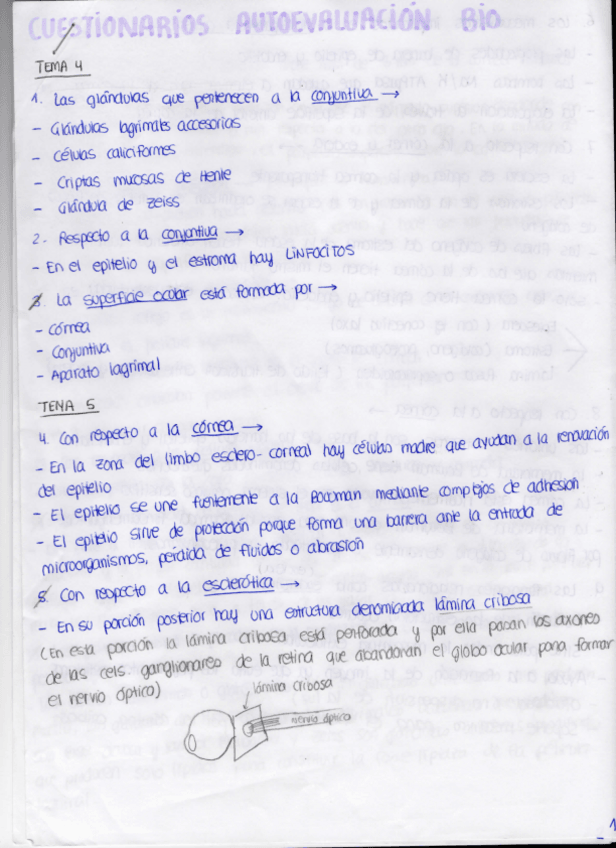 CUESTIONARIOS AUTOEVALUACIÓN BIO
TEMA 4
1. Las glándulas que pertenecen a la conjuntiva →
- Glándulas lagrimales accesorias
- Células caliciformes
- Criptas mucosas de Henle
- Glándula de zeiss
2. Respecto a la conjuntiva →
- En el epitelio y el estroma hay LINFOCITOS
3. La superficie ocular está formada por →
- córnea
- Conjuntiva
- Aparato lagrimal
TEMA 5
4. Con respecto a la córnea →
- En la zona del limbo esclero-corneal hay células madre que ayudan a la renovación
del epitelio
- El epitelio se une fuertemente a la Bowman mediante complejos de adhesión
- El epitelio sirve de protección porque forma una barrera ante la entrada de
microorganismos, perdida de fluidos o abrasión
5. Con respecto a la esclerótica →
- En su porción posterior hay una estructura denominada lámina cribosa
(En esta porción la lámina cribosa está perforada y por ella pasan los axones
de las cels. ganglionares de la retina que abandonan el globo ocular para formar
el nervio óptico)
lámina cribosa
nervio óptico
1